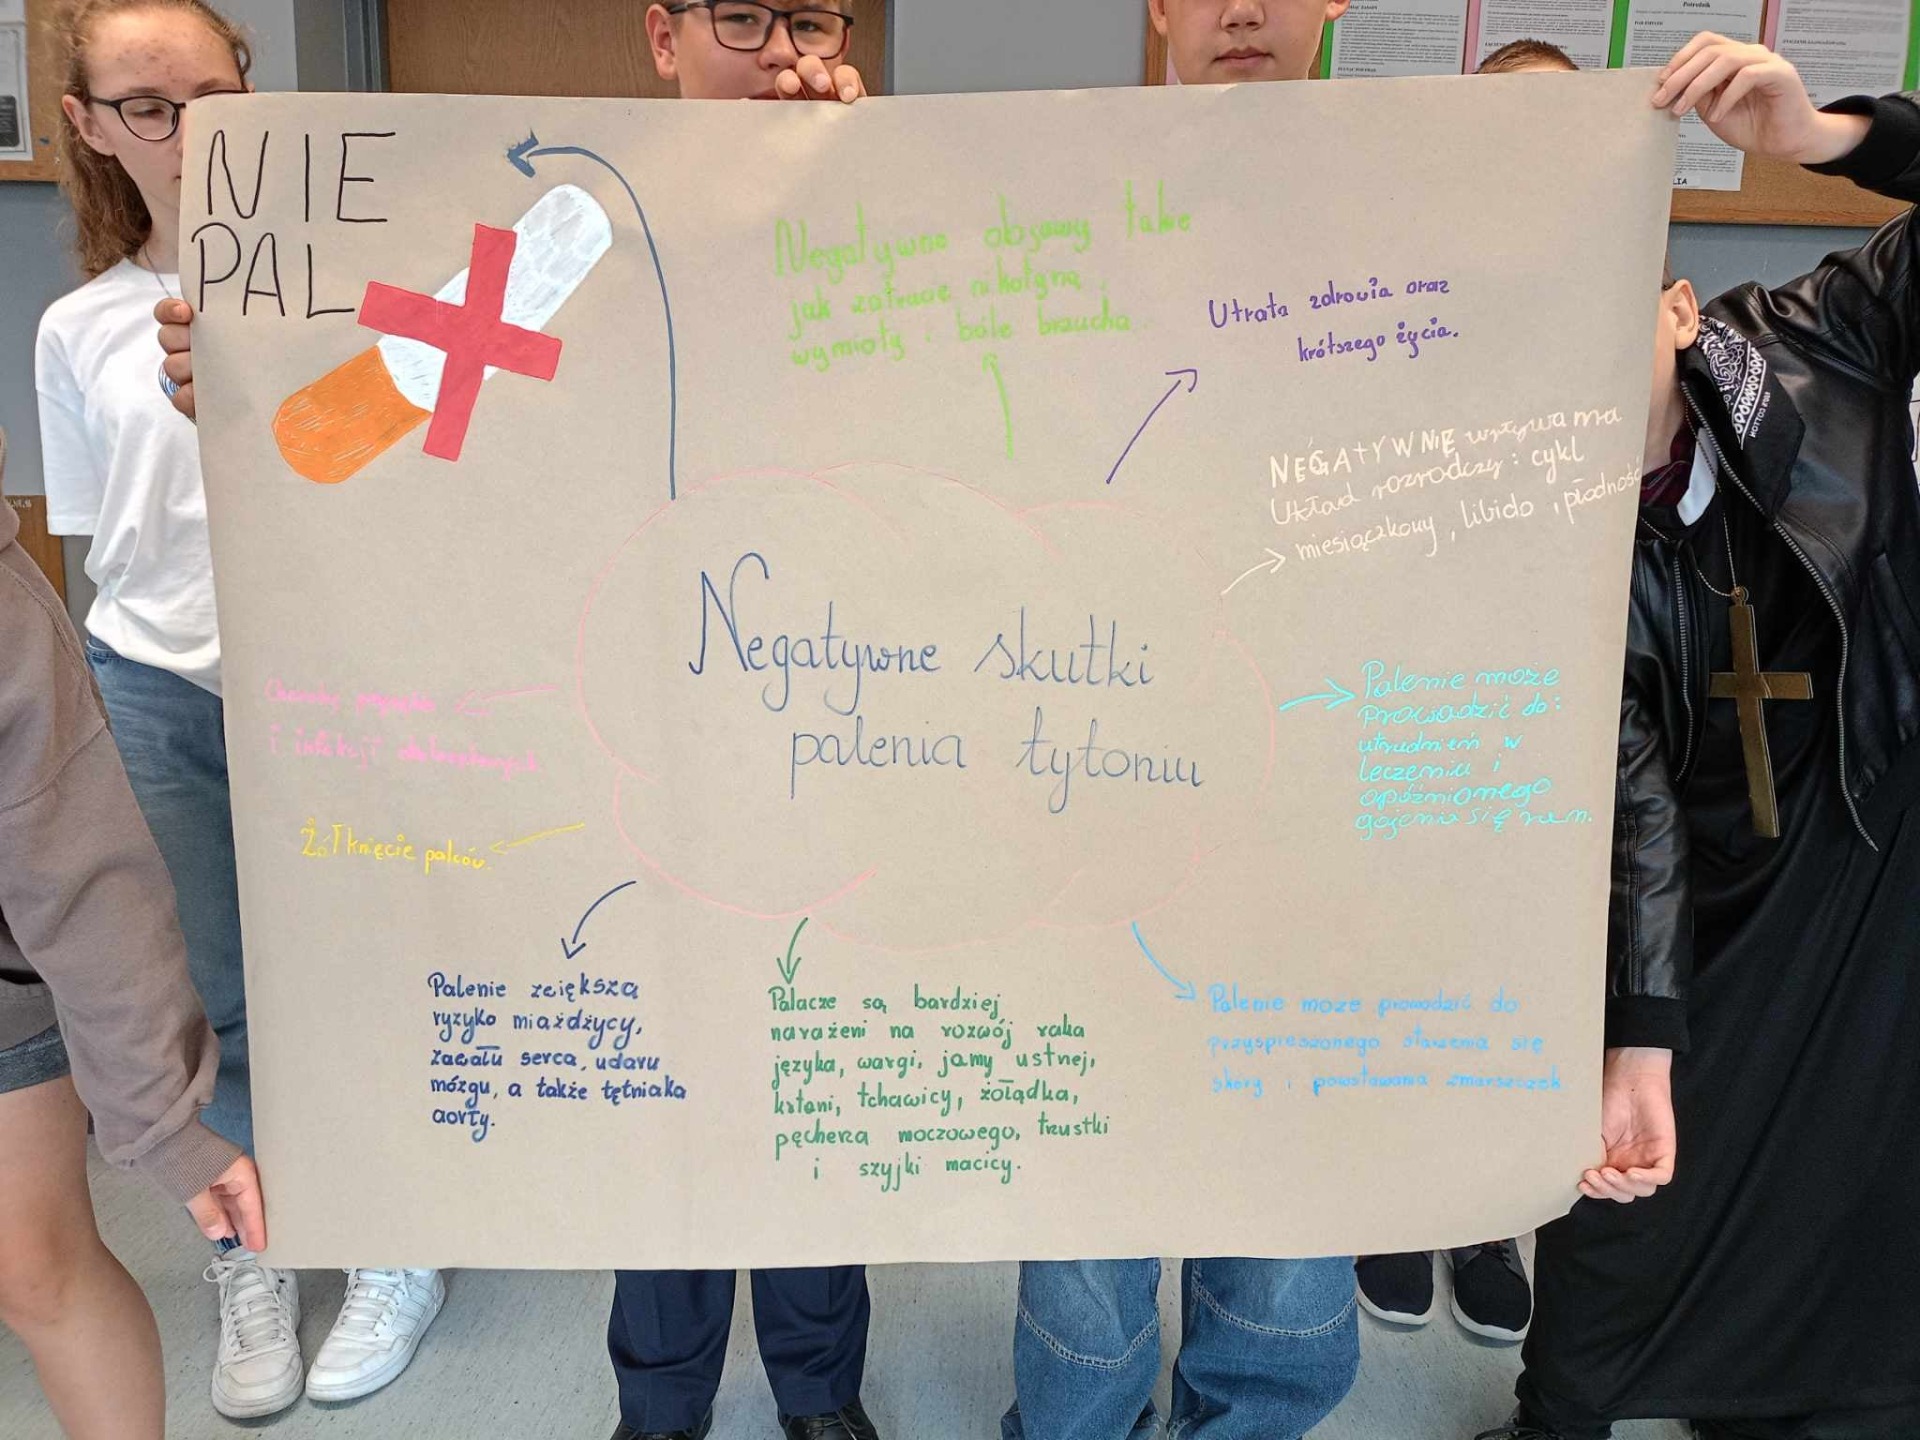 NIE
PAL
Negatywne objawy takie
jak zatrucie nikotyną,
wymioty i bóle brzucha
Utrata zdrowia oraz
krótszego życia.
NEGATYWNIE wpływa na
Układ rozrodczy: cykl
miesiączkowy, libido, płodność
Negatywne skutki
palenia tytoniu
Palenie może
prowadzić do:
utrudnień w
leczeniu i
opóźnionego
gojenia się ran.
Choroby
i infekcji
Żółknięcie palców.
Palenie zwiększa
ryzyko miażdżycy,
zawału serca, udaru
mózgu, a także tętniaka
aorty.
Palacze są bardziej
narażeni na rozwój raka
języka, wargi, jamy ustnej,
krtani, tchawicy, żołądka,
pęcherza moczowego, trzustki
i szyjki macicy.
Palenie może prowadzić do
przyspieszonego starzenia się
skóry i powstawania zmarszczek